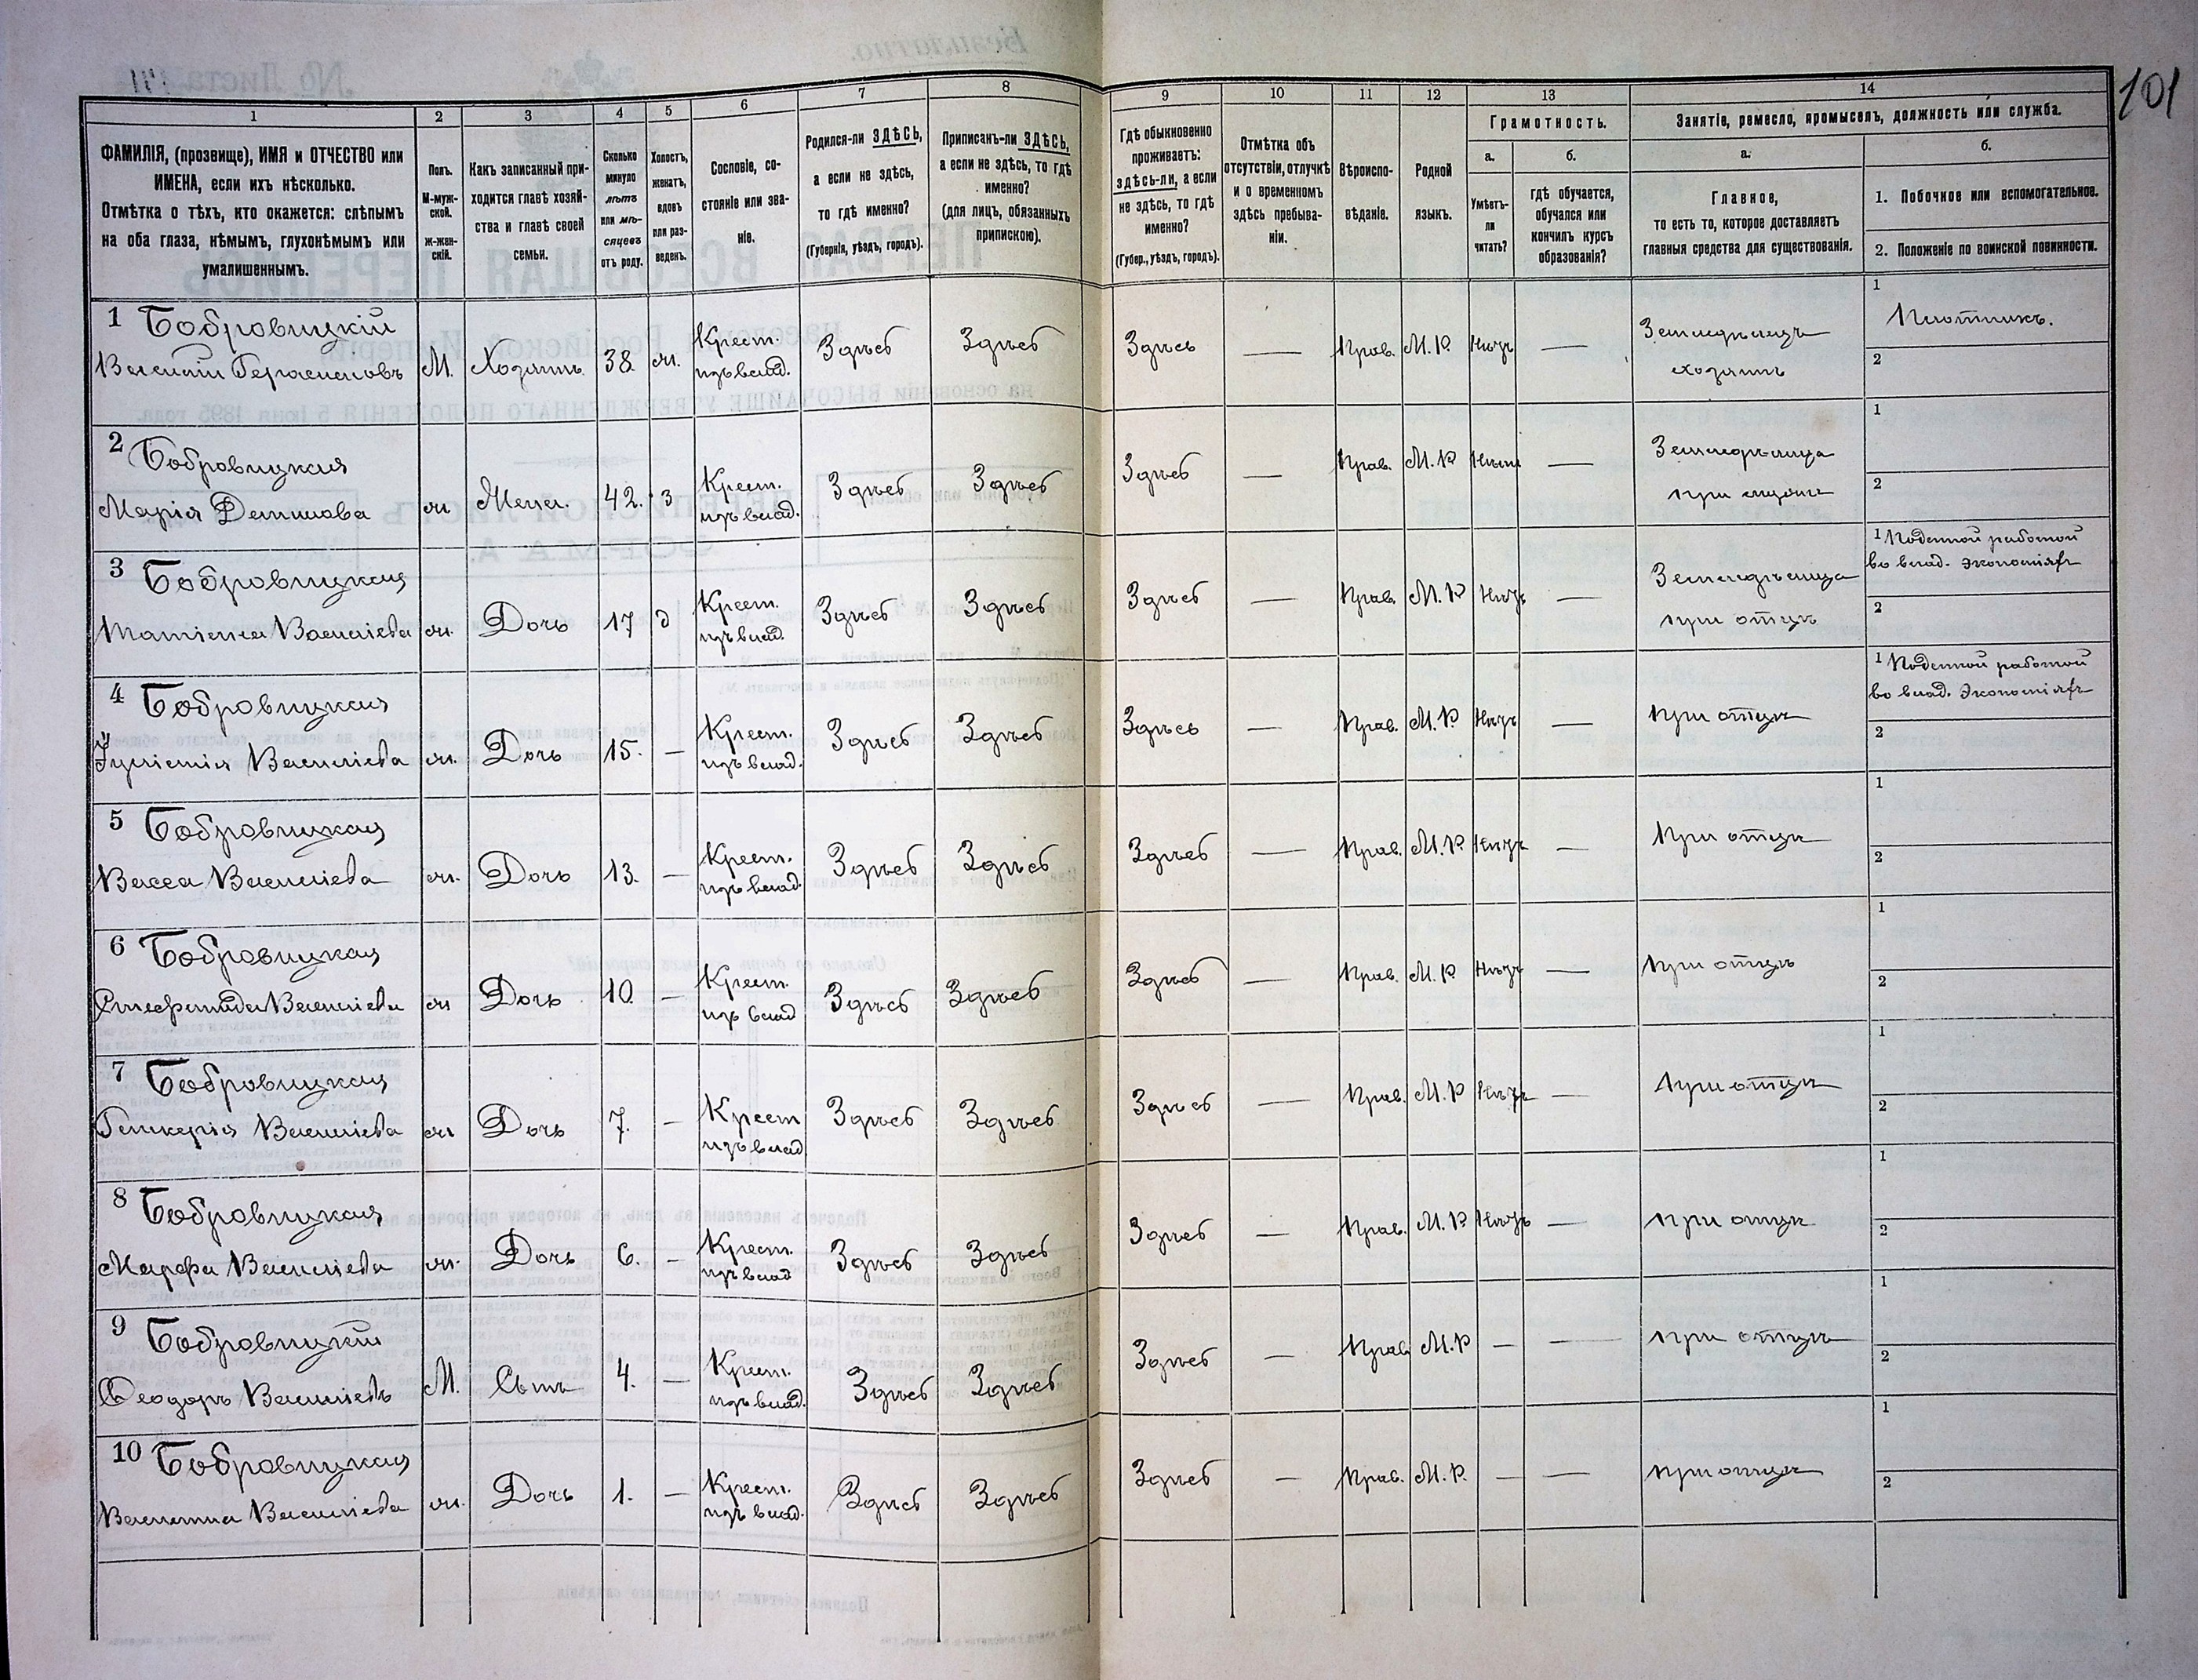 101
1
2
3
4
5
6
7
8
9
10
11
12
13
14
ФАМИЛІЯ, (прозвище), ИМЯ и ОТЧЕСТВО или
ИМЕНА, если ихъ нѣсколько.
Отмѣтка о тѣхъ, кто окажется: слѣпымъ
на оба глаза, нѣмымъ, глухонѣмымъ или
умалишеннымъ.
Полъ.
М-муж-
ской.
ж-жен-
скій.
Какъ записанный при-
ходится главѣ хозяй-
ства и главѣ своей
семьи.
Сколько
минуло
лѣтъ
или мѣ-
сяцевъ
отъ роду.
Холостъ,
женатъ,
вдовъ
или раз-
веденъ.
Сословіе, со-
стояніе или зва-
ніе.
Родился-ли ЗДѢСЬ,
а если не здѣсь,
то гдѣ именно?
(Губернія, уѣздъ, городъ).
Приписанъ-ли ЗДѢСЬ,
а если не здѣсь, то гдѣ
именно?
(для лицъ, обязанныхъ
припискою).
Гдѣ обыкновенно
проживаетъ:
здѣсь-ли, а если
не здѣсь, то гдѣ
именно?
(Губер., уѣздъ, городъ).
Отмѣтка объ
отсутствіи, отлучкѣ
и о временномъ
здѣсь пребыва-
ніи.
Вѣроиспо-
вѣданіе.
Родной
языкъ.
Грамотность.
а.
б.
Умѣетъ-
ли
читать?
гдѣ обучается,
обучался или
кончилъ курсъ
образованія?
Занятіе, ремесло, промыселъ, должность или служба.
а.
б.
Главное,
то есть то, которое доставляетъ
главныя средства для существованія.
1. Побочное или вспомогательное.
2. Положеніе по воинской повинности.
1 Бобровицкій
Василій Герасимовъ
М. Хозяинъ 38. ж. Крест. изъ влад. Здѣсь Здѣсь Здѣсь — Прав. М. Р. Нѣтъ — Земледѣлецъ хозяинъ
1 Плотникъ.
2
2 Бобровицкая
Марія Данилова
ж Жена. 42. з Крест. изъ влад. Здѣсь Здѣсь Здѣсь — Прав. М. Р Нѣтъ — Земледѣлица при
1
2
3 Бобровицкая
Татіана Василіева
ж. Дочь 17 д Крест. изъ влад. Здѣсь Здѣсь Здѣсь — Прав. М. Р Нѣтъ — Земледѣлица при отцѣ
1 Поденной работой
во влад. экономіяхъ
2
4 Бобровицкая
Василіева
ж. Дочь 15. — Крест. изъ влад. Здѣсь Здѣсь Здѣсь — Прав. М. Р Нѣтъ — при отцѣ
1 Поденной работой
во влад. экономіяхъ
2
5 Бобровицкая
Васса Василіева
ж. Дочь 13. — Крест. изъ влад. Здѣсь Здѣсь Здѣсь — Прав. М. Р. Нѣтъ — при отцѣ
1
2
6 Бобровицкая
Василіева
ж Дочь 10. — Крест. изъ влад Здѣсь Здѣсь Здѣсь — Прав. М. Р. Нѣтъ — при отцѣ
1
2
7 Бобровицкая
Гликерія Василіева
ж Дочь 7. — Крест изъ влад Здѣсь Здѣсь Здѣсь — Прав. М. Р Нѣтъ — при отцѣ
1
2
8 Бобровицкая
Марфа Василіева
ж. Дочь 6. — Крест. изъ влад Здѣсь Здѣсь Здѣсь — Прав. М. Р Нѣтъ — при отцѣ
1
2
9 Бобровицкій
Ѳеодоръ Василіевъ
М. Сынъ 4. — Крест. изъ влад. Здѣсь Здѣсь Здѣсь — Прав М. Р — — при отцѣ
1
2
10 Бобровицкая
Василіева
ж. Дочь 1. — Крест. изъ влад. Здѣсь Здѣсь Здѣсь — Прав. М. Р. — — при отцѣ
1
2